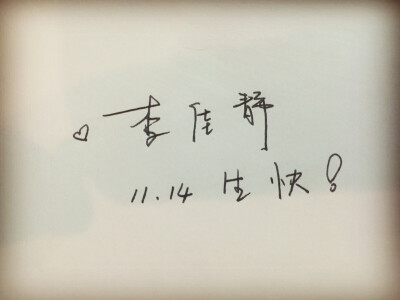 ♡李佳静
11.14 生快!